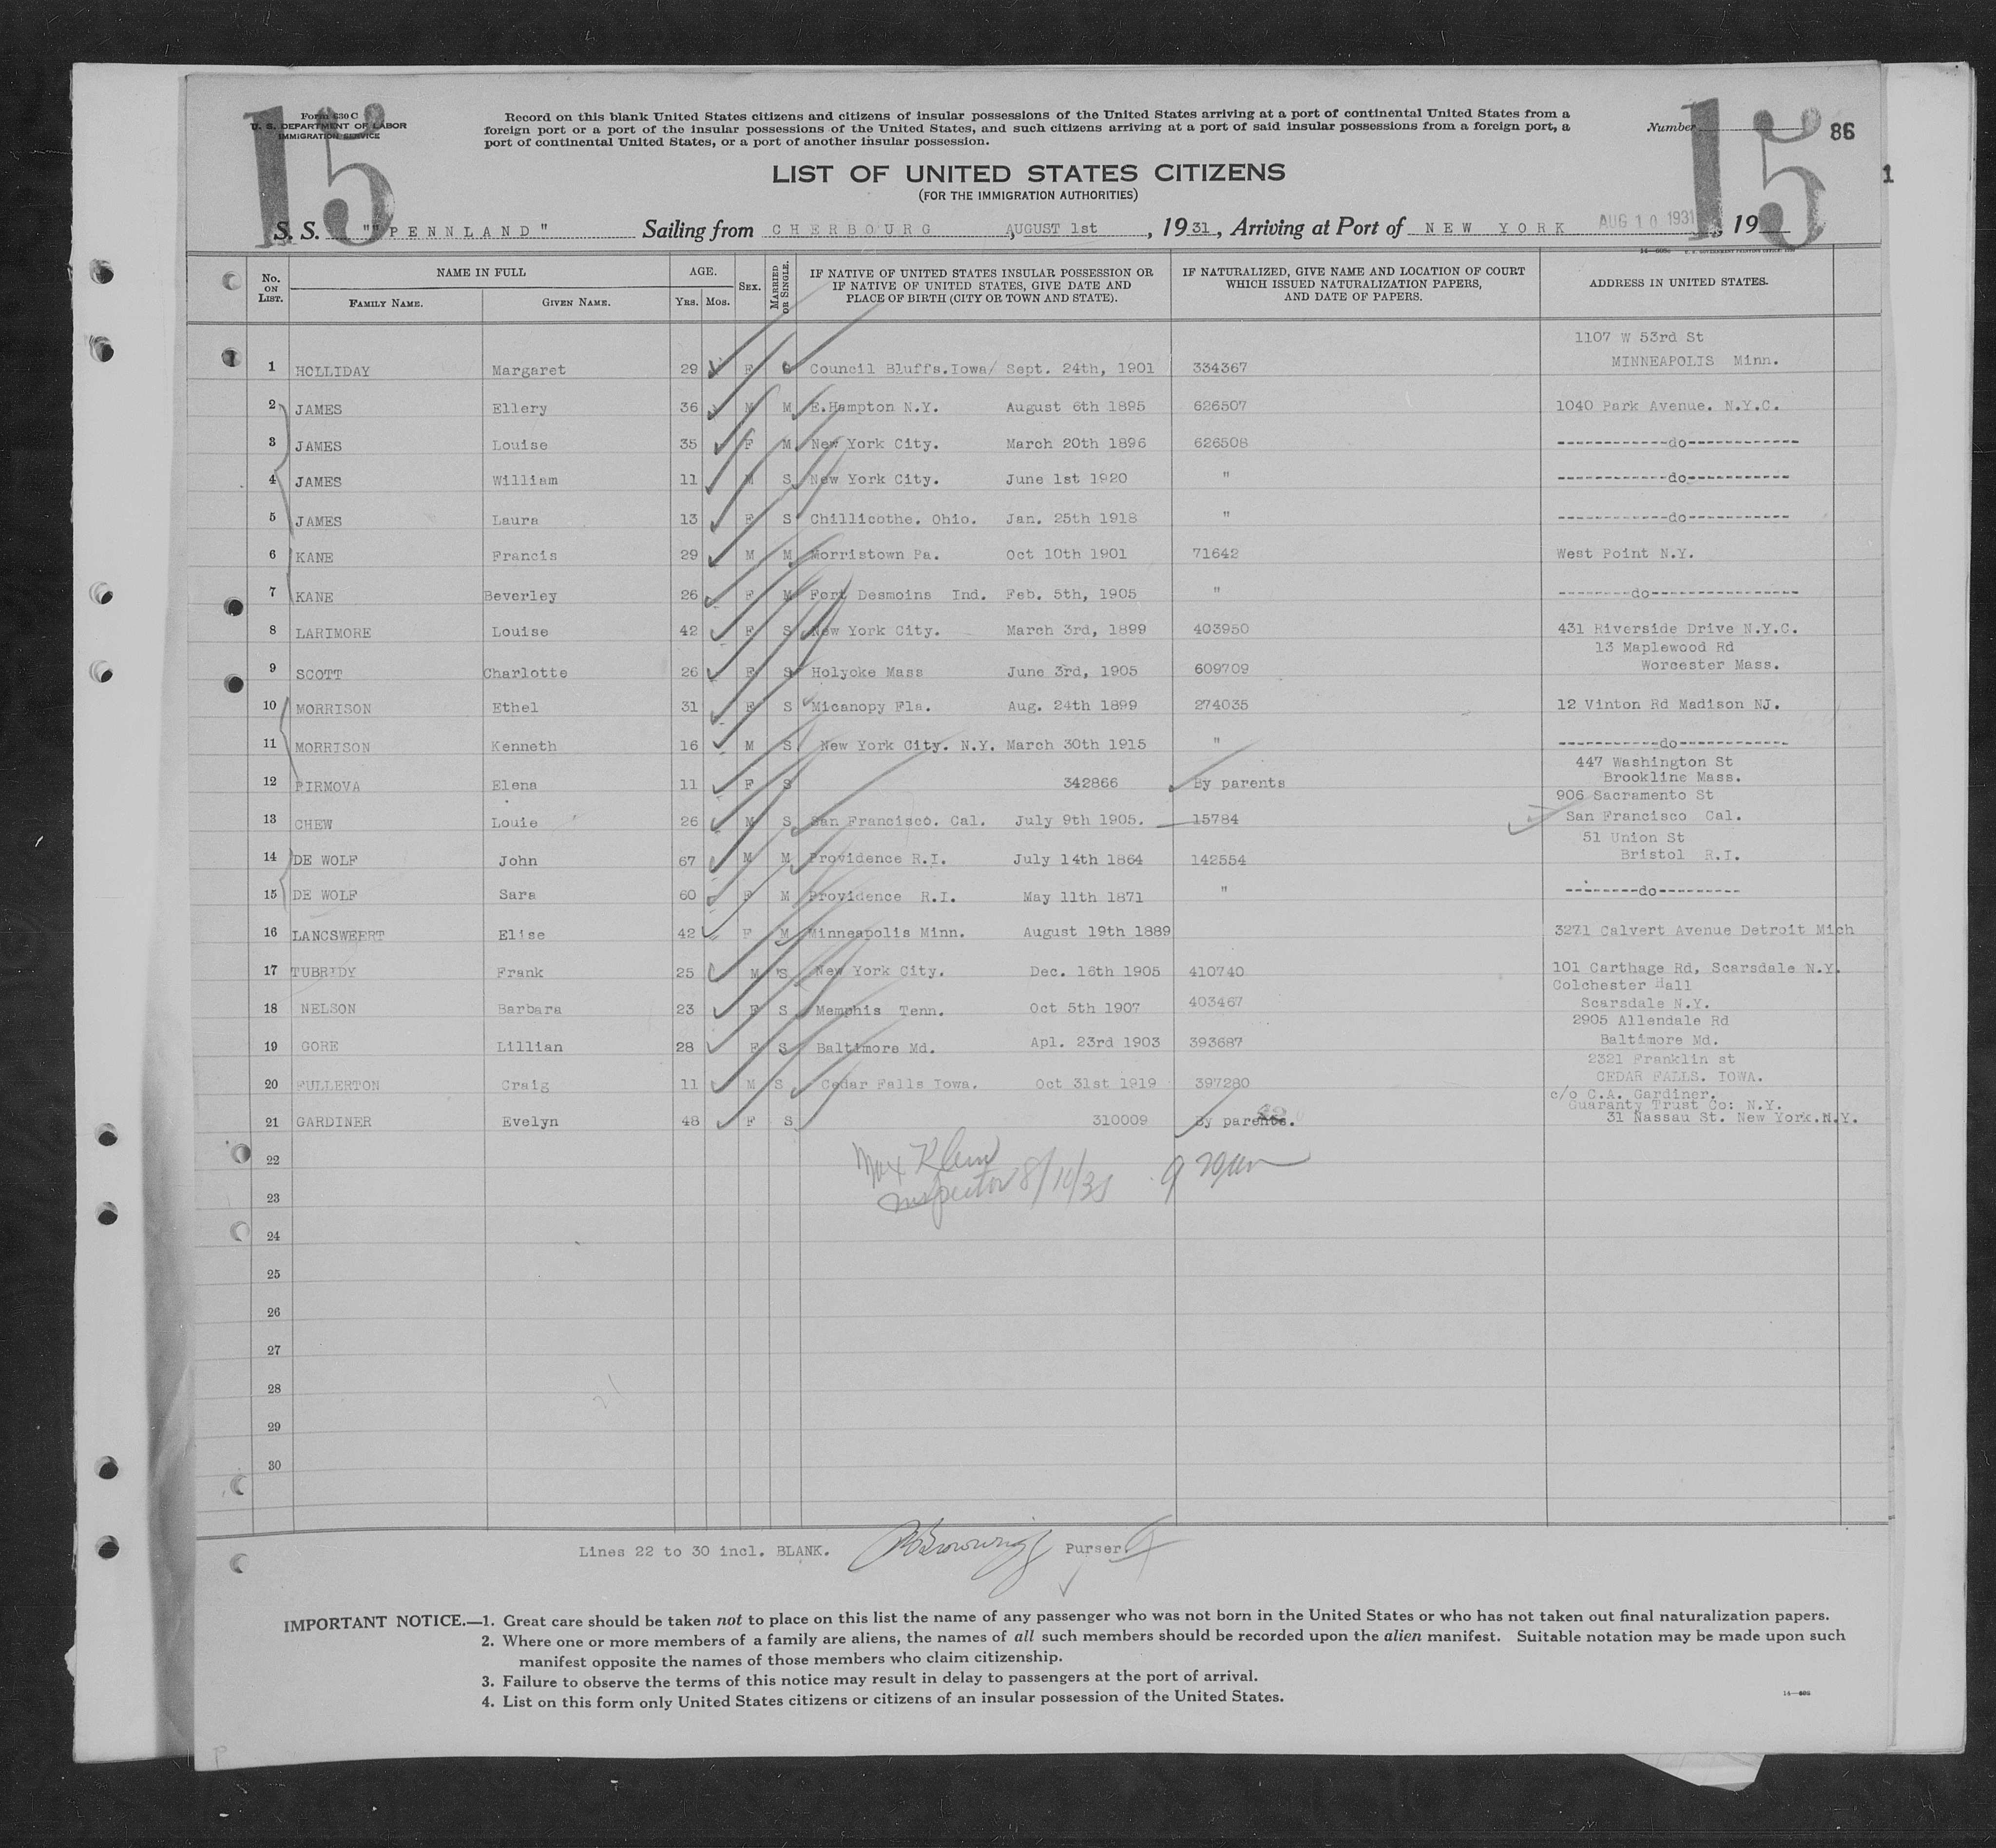 15
Form 630 C
U. S. DEPARTMENT OF LABOR
IMMIGRATION SERVICE
Record on this blank United States citizens and citizens of insular possessions of the United States arriving at a port of continental United States from a
foreign port or a port of the insular possessions of the United States, and such citizens arriving at a port of said insular possessions from a foreign port, a
port of continental United States, or a port of another insular possession.
Number
15
86
1
LIST OF UNITED STATES CITIZENS
(FOR THE IMMIGRATION AUTHORITIES)
S. S. ""PENNLAND" Sailing from CHERBOURG, AUGUST 1st, 1931, Arriving at Port of NEW YORK AUG 10 1931, 19
No. ON LIST. NAME IN FULL AGE. SEX. MARRIED OR SINGLE. IF NATIVE OF UNITED STATES INSULAR POSSESSION OR IF NATIVE OF UNITED STATES, GIVE DATE AND PLACE OF BIRTH (CITY OR TOWN AND STATE). IF NATURALIZED, GIVE NAME AND LOCATION OF COURT WHICH ISSUED NATURALIZATION PAPERS, AND DATE OF PAPERS. ADDRESS IN UNITED STATES.
FAMILY NAME. GIVEN NAME. YRS. MOS.
1107 W 53rd St
1 HOLLIDAY Margaret 29 F Council Bluffs.Iowa/ Sept. 24th, 1901 334367 MINNEAPOLIS Minn.
2 JAMES Ellery 36 M M E.Hampton N.Y. August 6th 1895 626507 1040 Park Avenue. N.Y.C.
3 JAMES Louise 35 F M New York City. March 20th 1896 626508 ------------do------------
4 JAMES William 11 M S New York City. June 1st 1920 " ------------do-----------
5 JAMES Laura 13 F S Chillicothe. Ohio. Jan. 25th 1918 " ------------do-----------
6 KANE Francis 29 M M Morristown Pa. Oct 10th 1901 71642 West Point N.Y.
7 KANE Beverley 26 F M Fort Desmoins Ind. Feb. 5th, 1905 " --------do----------------
8 LARIMORE Louise 42 F S New York City. March 3rd, 1899 403950 431 Riverside Drive N.Y.C.
13 Maplewood Rd
9 SCOTT Charlotte 26 F S Holyoke Mass June 3rd, 1905 609709 Worcester Mass.
10 MORRISON Ethel 31 F S Micanopy Fla. Aug. 24th 1899 274035 12 Vinton Rd Madison NJ.
11 MORRISON Kenneth 16 M S New York City. N.Y. March 30th 1915 " -----------do------------
447 Washington St
12 PIRMOVA Elena 11 F S 342866 By parents Brookline Mass.
906 Sacramento St
13 CHEW Louie 26 M S San Francisco. Cal. July 9th 1905. 15784 San Francisco Cal.
51 Union St
14 DE WOLF John 67 M M Providence R.I. July 14th 1864 142554 Bristol R.I.
15 DE WOLF Sara 60 F M Providence R.I. May 11th 1871 " --------do---------
16 LANCSWEERT Elise 42 F M Minneapolis Minn. August 19th 1889 3271 Calvert Avenue Detroit Mich
17 TUBRIDY Frank 25 M S New York City. Dec. 16th 1905 410740 101 Carthage Rd, Scarsdale N.Y.
Colchester Hall
18 NELSON Barbara 23 F S Memphis Tenn. Oct 5th 1907 403467 Scarsdale N.Y.
2905 Allendale Rd
19 GORE Lillian 28 F S Baltimore Md. Apl. 23rd 1903 393687 Baltimore Md.
2321 Franklin st
20 FULLERTON Craig 11 M S Cedar Falls Iowa. Oct 31st 1919 397280 CEDAR FALLS. IOWA.
c/o C.A. Gardiner.
Guaranty Trust Co: N.Y.
21 GARDINER Evelyn 48 F S 310009 By parents. 31 Nassau St. New York.N.Y.
22 Max Klein
23 Inspector 8/10/31
24
25
26
27
28
29
30
Lines 22 to 30 incl. BLANK. Purser.
IMPORTANT NOTICE.—1. Great care should be taken not to place on this list the name of any passenger who was not born in the United States or who has not taken out final naturalization papers.
2. Where one or more members of a family are aliens, the names of all such members should be recorded upon the alien manifest. Suitable notation may be made upon such
manifest opposite the names of those members who claim citizenship.
3. Failure to observe the terms of this notice may result in delay to passengers at the port of arrival.
4. List on this form only United States citizens or citizens of an insular possession of the United States.